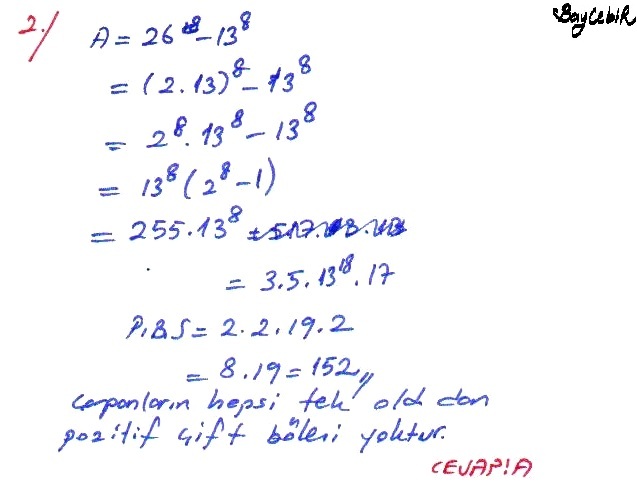 BayCebiR
2.) A = 26⁸ - 13⁸
= (2.13)⁸ - 13⁸
= 2⁸. 13⁸ - 13⁸
= 13⁸ (2⁸ - 1)
= 255.13⁸
= 3.5.13¹⁸.17
P.B.S = 2.2.19.2
= 8.19 = 152,,
Çarponların hepsi tek old dan
pozitif çift böleni yoktur.
CEVAP: A